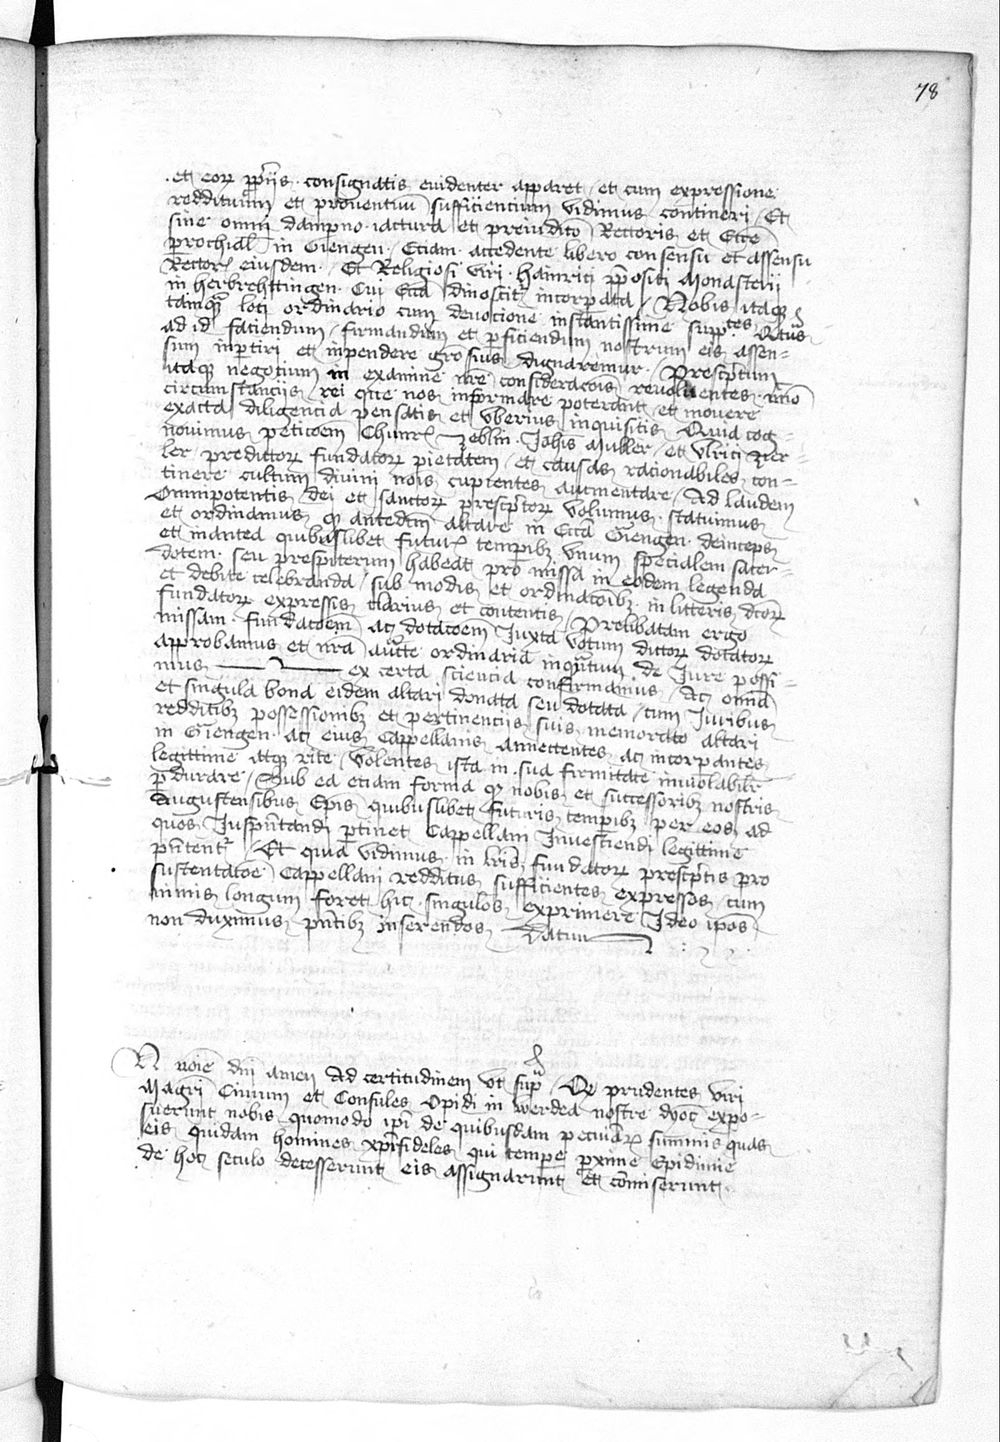 78
et eoꝝ ꝓpriis consignatis euidenter apparet et cum expressione
reddituum et prouentuum sufficiencium vidimus contineri Et
sine omni dampno iactura et preiudico Rectoris et Ecce
prochial in Giengen Etiam accedente libero consensu et assensu
Rectoꝝ eiusdem Et Religiosi viri Hainrici ppositi Monasterii
in herbrehttingen Cui Ecca dinoscitꝛ incorpata Nobis itaqꝫ
tamqꝫ loci ordinario cum deuocione instantissime supptes
ad id faciendum firmandum et pficiendum nostrum eis assen-
sum inpertiri et inpendere grose dignaremur Prescptum
itaqꝫ negotium in examine nre consideracois reuoluentes
circumstanciis rei que nos informare poterant et mouere
exacta diligencia pensatis et vberius inquisitis Quia cog-
nouimus peticoem Chunrꝭ zeblin Johis Muller et Vlrici zer-
ler predictoꝝ fundatoꝝ pietatem et causas racionabiles con-
tinere cultum diuini nois cupientes augmentare Ad laudem
Omnipotentis dei et sanctoꝝ prescptoꝝ volumus statuimus
et ordinamus qꝫ antedcm altare in Ecca Giengen deinceps
et inantea quibuslibet futurꝭ tempibꝫ vnum specialem sacer-
dotem seu prespiterum habeat pro missa in eodem legenda
et debite celebranda sub modis et ordinacoibꝫ in litteris dcoꝝ
fundatoꝝ expressis clarius et contentis Prelibatam ergo
missam fundacoem ac dotacoem Juxta votum dictoꝝ dotatoꝝ
approbamus et nra aucte ordinaria inqntum de Jure possu-
mus ex certa sciencia confirmamus Ac omia
et singula bona eidem altari donata seu dotata cum Juribus
redditibꝫ possessionibꝫ et pertinenciis suis memorato altari
in Giengen ac eius Cappellanis annectentes ac incorpantes
legittime atqꝫ rite Volentes ista in sua firmitate inuiolabilr
pdurare Sub ea etiam forma qꝫ nobis et successoribꝫ nostris
Augustensibus Epis quibuslibet futuris tempibꝫ per eos ad
quos Juspntandi ptinet Cappellam Inuestiendi legittime
pntentꝛ Et quia vidimus in lris fundatoꝝ prescptis pro
sustentacoe Cappellani redditus sufficientes expressos cum
nimis longum foret hic singulos exprimere Ideo ipos
non duximus pntibꝫ inserendos Datum
N noie dni amen Ad certitudinem vt supra Qꝫ prudentes viri
Magri Ciuium et Consules Opidi in werdea nostre dyoc expo-
suerunt nobis quomodo ipi de quibusdam pecuniaꝝ summis quas
eis quidam homines xpifideles qui tempe pxime Epidimie
de hoc seculo decesserunt eis assignarunt et comiserunt